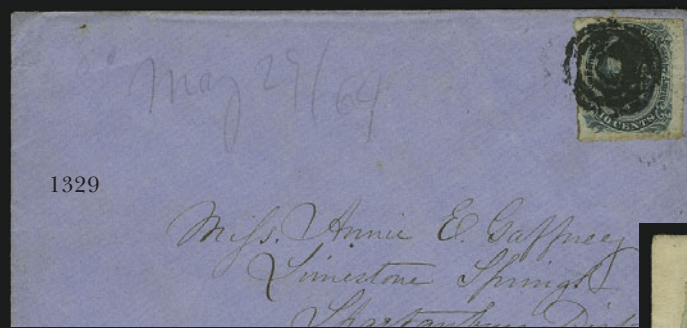 May 29/64
10 CENTS
1329
Miss. Annie E. Gaffney
Limestone Springs
Spartanburg Dist